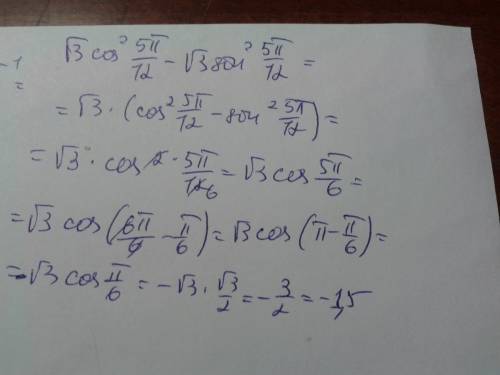 -1 √3 cos² 5π/12 - √3 sin² 5π/12 =
=
= √3 · (cos² 5π/12 - sin² 5π/12) =
= √3 · cos 2 · 5π/12 6 = √3 cos 5π/6 =
= √3 cos (6π/6 - π/6) = √3 cos (π - π/6) =
= -√3 cos π/6 = -√3 · √3/2 = -3/2 = -1,5